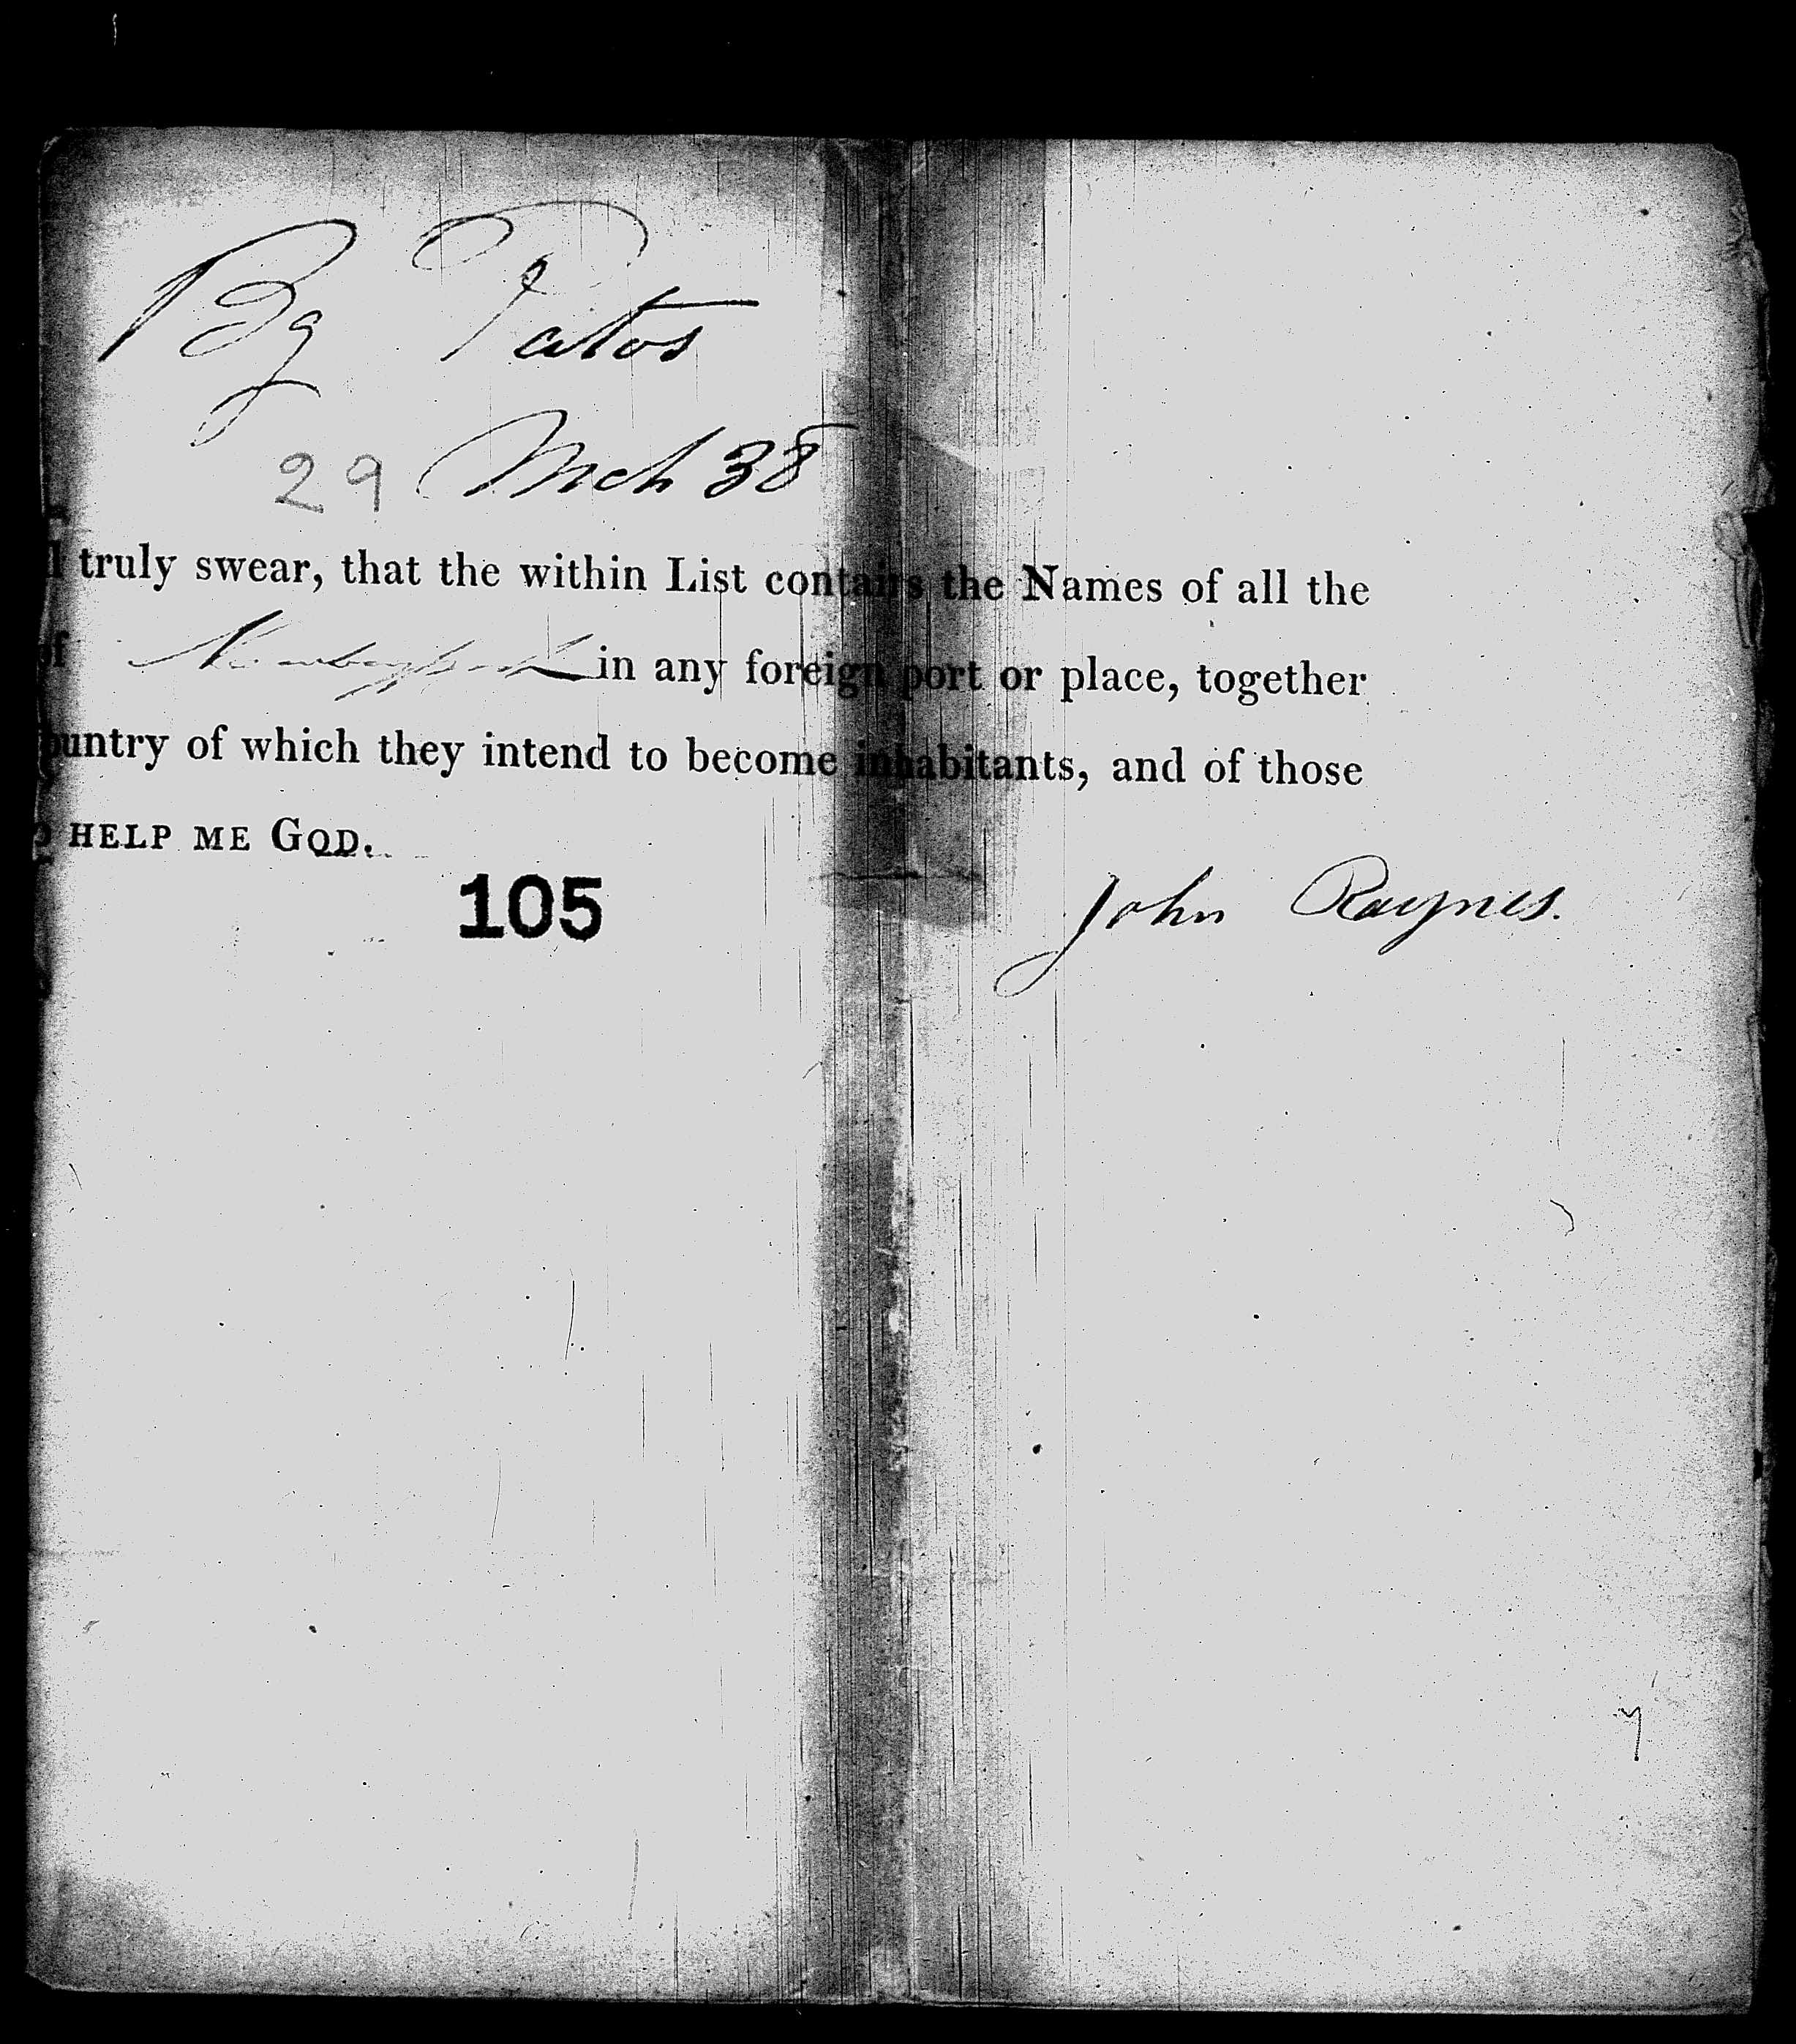 Bg Patos
29 Mch 38
l truly swear, that the within List contains the Names of all the
of Newburyport in any foreign port or place, together
ountry of which they intend to become inhabitants, and of those
o HELP ME GOD.
105
John Raynes.